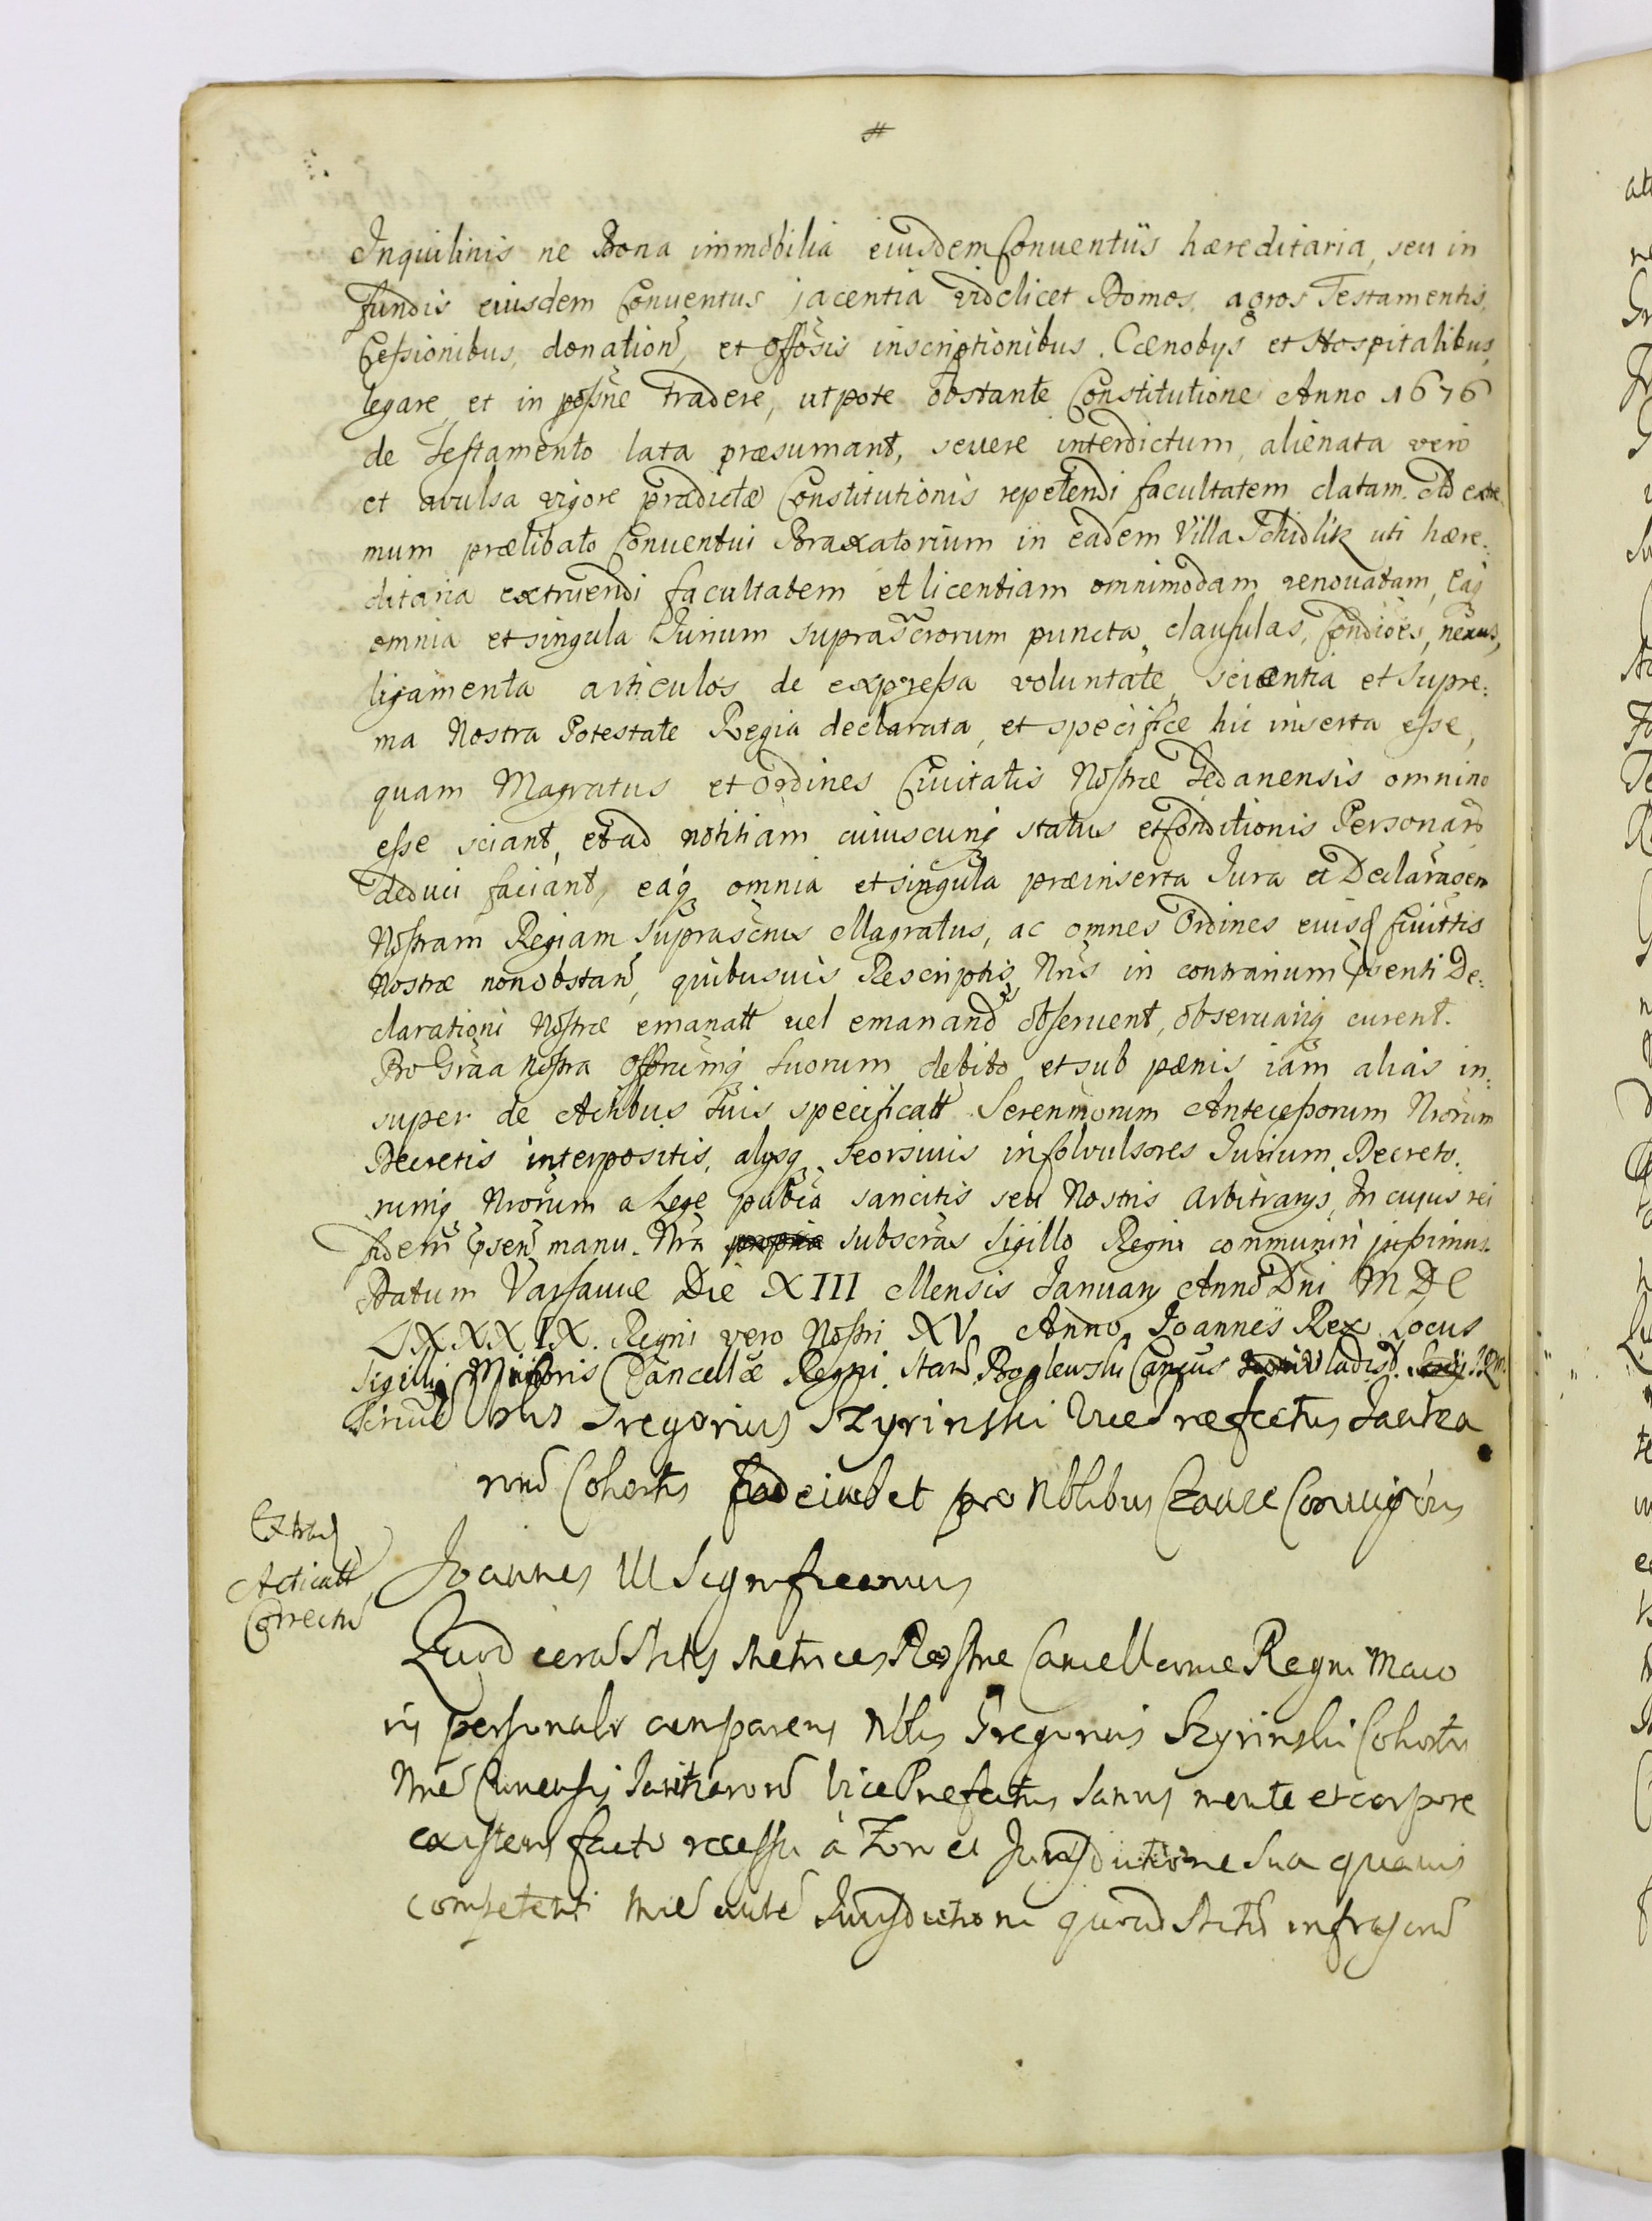 Inquilinis ne Bona immobilia eiusdem Conventûs hæreditaria, seu in
fundis eiusdem Conuentus jacentia videlicet Domos, agros Testamentis,
Cessionibus, donation, et offosis inscriptionibus. Cænobys et Hospitalibus,
legare, et in possne tradere, utpote obstante Constitutione Anno 1676
de Testamento lata præsumant, seuere interdictum, alienata vero
et avulsa vigore prædictæ Constitutionis repetendi facultatem datam. Ad extre
mum prælibato Conuentui Braxatorium in eadem Villa Schidlik uti hære:
ditaria extruendi facultatem et licentiam omnimodam renouatam, Eaq
omnia et singula Iurium suprascrorum puncta, clausulas, Condiões, nexus,
ligamenta articulos de expressa voluntate, scientia et supre:
ma Nostra Potestate Regia declarata, et specifice hic inserta esse,
quam Magratus et Ordines Ciuitatis Nostræ Gedanensis omnino
esse sciant, et ad notitiam cuiuscunq status et Conditionis Personaru
deduci faciant, eaq omnia et singula præinserta Iura et Declaraoem
Nostram Regiam suprascrius Magratus, ac omnes Ordines eiusd Ciuittis
Nostræ nonobstan, quibusuis Rescriptis Nris in contrarium psenti De:
clarationi Nostræ emanatt uel emanand obseruent, obseruariq curent.
Pro Graa Nostra offorumq suorum debito, et sub pænis iam alias in:
super de Actibus suis specificatt Serenmorum Antecessorum Nrorum
Decretis interpositis, alysq seorsiuis in Conuulsores Iurium Decreto.
rumq Nrorum a Lege publca sancitis seu Nostris arbitrarys, In cuius rei
fidem psen manu Nra subscras Sigillo Regni communiri jussimus.
Datum Varsauiæ Die XIII Mensis Ianuary Anno Dni MDC
LXXXIX. Regni vero Nostri XV. Anno, Ioannes Rex Locus
Sigilli Minoris Cancellæ Regni
Gregorius Szyrinski Vice Præfectus Janicza
rorũ Cohortis et pro Nblibus
Extrad
Acticatt
Correctũ
Joannes III Significamus
Quod coram Actis Metrices Nostræ Cancellariæ Regni Maio
ris personalr comparens Nblis Gregorius Szyrinski Cohortis
Vice Præfectus sanus mente et corpore
existens facto recessu à Foro et Jurisdictione sua quauis
competenti Jurisdictioni quoad Actũ infrascrũ